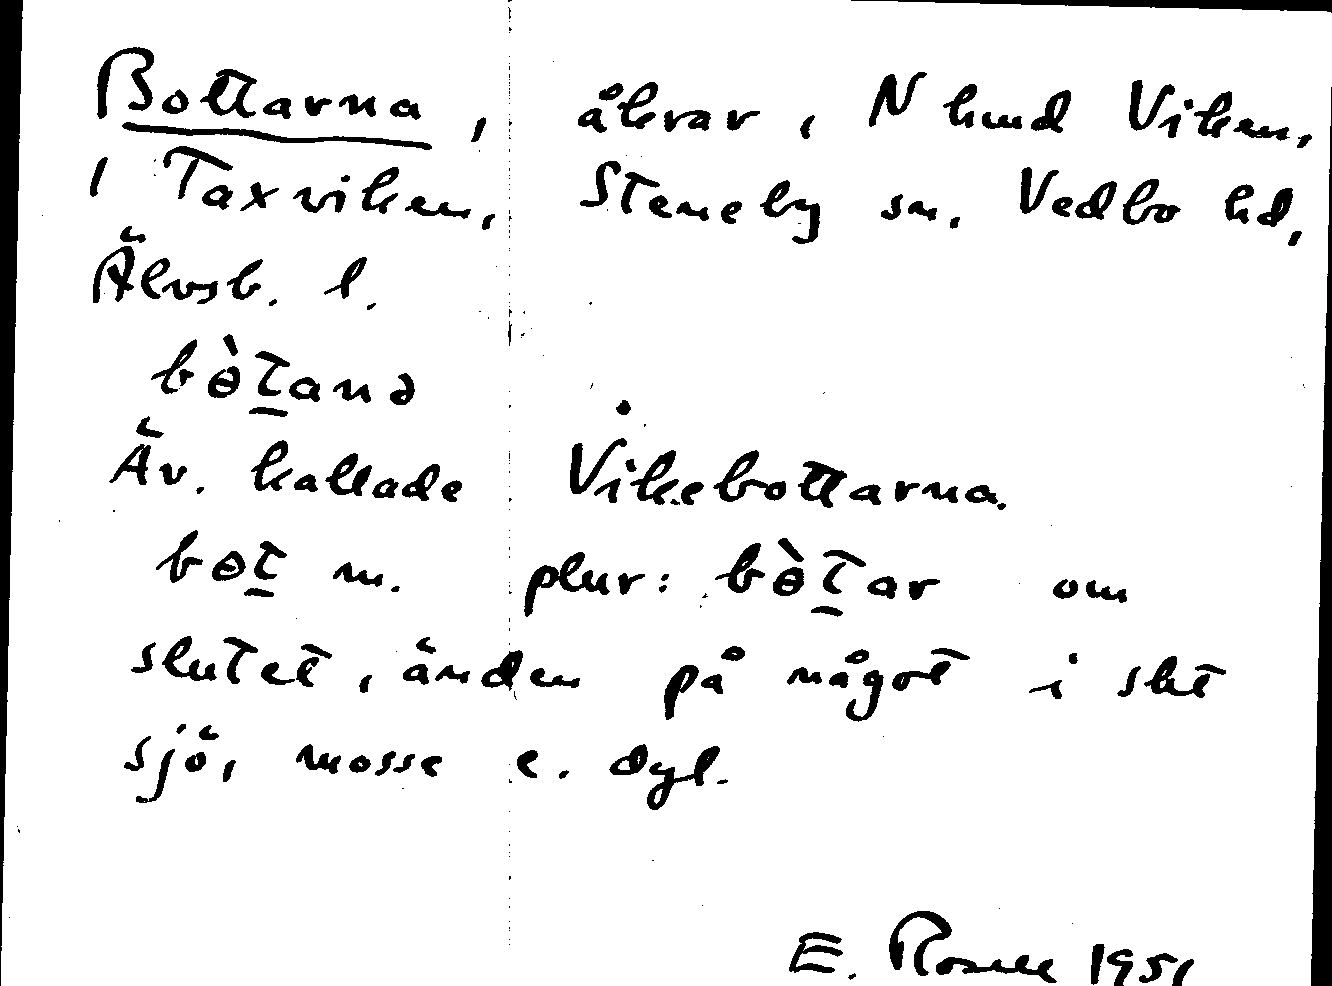 Bottarna, åkrar, N hmd Viken,
1 Taxviken, Steneby sn. Vedbo hd,
Älvsb. l.
bɵ̀t̠anə
Äv. kallade Vikebottarna.
bɵt̠ m. plur: bɵ̀t̠ar om
slutet, änden på något i sht
sjö, mosse e. dyl.
E. Rosell 1951